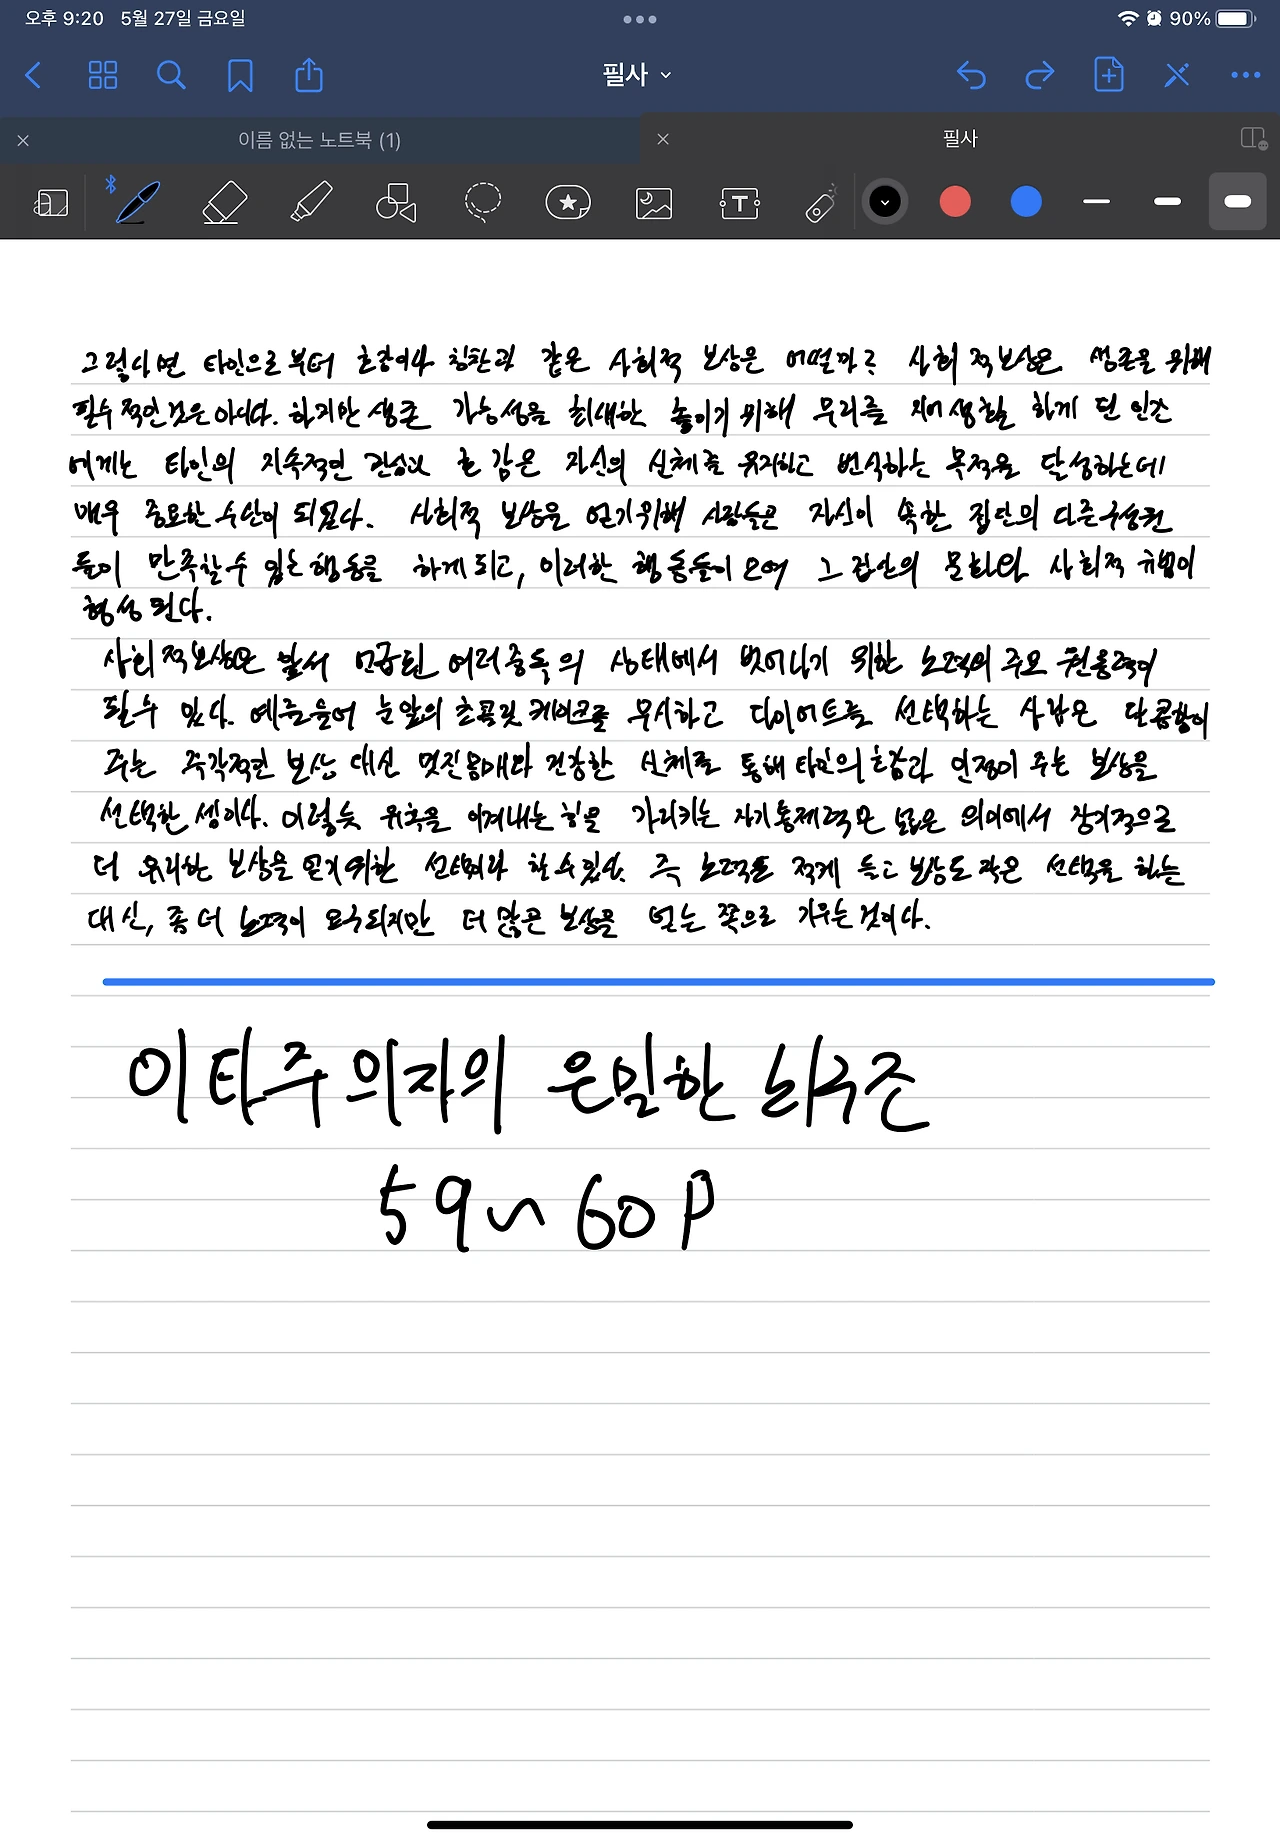 오후 9:20 5월 27일 금요일
90%
필사
이름 없는 노트북 (1)
필사
T
그렇다면 타인으로부터 호감이나 칭찬과 같은 사회적 보상은 어떨까? 사회적보상은 생존을 위해
필수적인것은 아니다. 하지만 생존 가능성을 최대한 높이기 위해 무리를 지어 생활 하게 된 인간
에게는 타인의 지속적인 관심과 호감은 자신의 신체를 유지하고 번식하는 목적을 달성하는데
매우 중요한 수단이 되었다. 사회적 보상을 얻기위해 사람들은 자신이 속한 집단의 다른구성원
들이 만족할수 있는행동을 하게되고, 이러한 행동들이 모여 그 집단의 문화와 사회적 규범이
형성된다.
사회적보상은 앞서 언급된 여러중독의 상태에서 벗어나기 위한 노력의 주요 원동력이
될수 있다. 예를들어 눈앞의 초콜릿 케이크를 무시하고 다이어트를 선택하는 사람은 단콤함이
주는 즉각적인 보상 대신 멋진몸매나 건강한 신체를 통해 타인의호감과 인정이 주는 보상을
선택한 셈이다. 이렇듯 유혹을 이겨내는 힘을 가리키는 자기통제력은 넓은 의미에서 장기적으로
더 유리한 보상을 얻기위한 선택이라 할수있다. 즉 노력도 적게 들고 보상도 작은 선택을 하는
대신, 좀 더 노력이 요구되지만 더 많은 보상을 얻는 쪽으로 가꾸는것이다.
이타주의자의 은밀한 뇌구조
59~60p